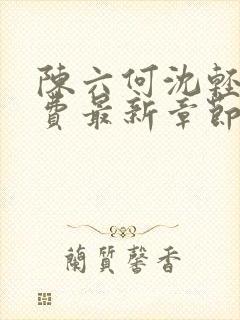 陳六何沈輕
費最新章節
蘭質馨香